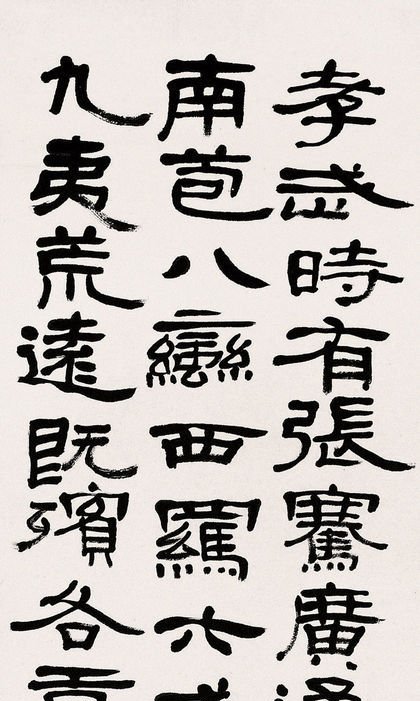 孝武時有張騫廣
南苞八蠻西羈六
九夷荒遠既殯各